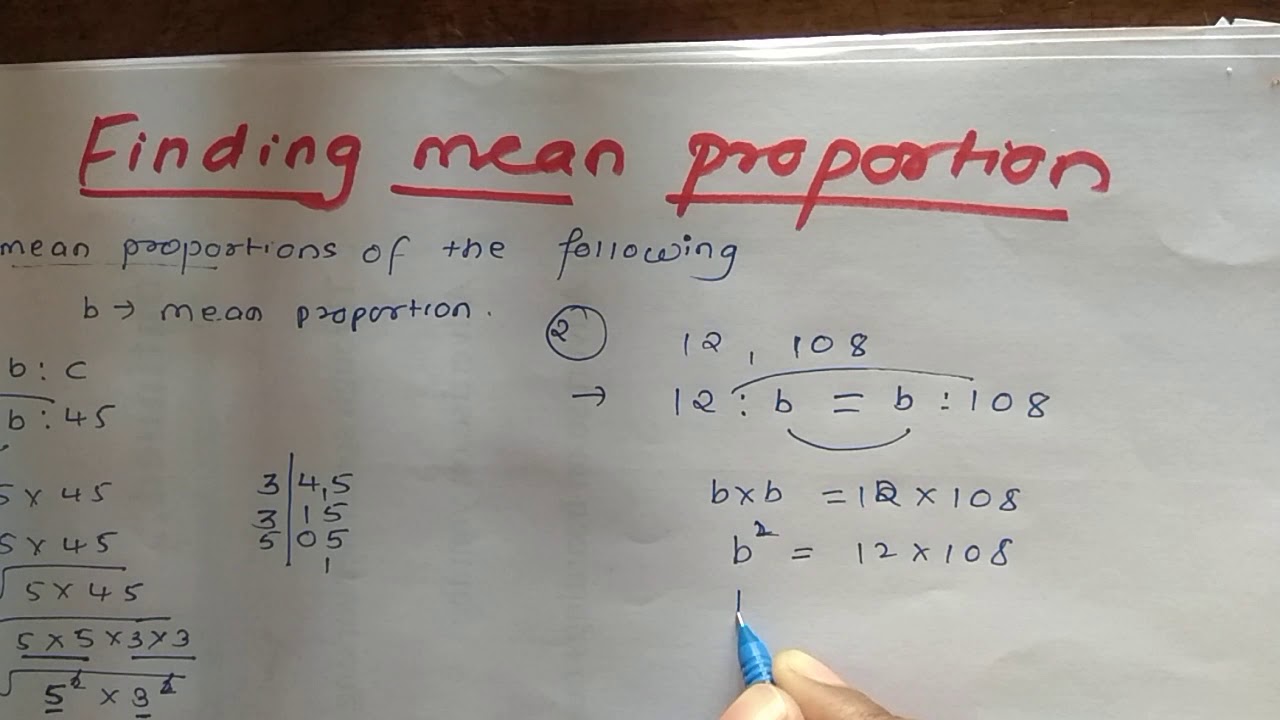 Finding mean proportion
mean proportions of the following
b → mean proportion.
b : c
b : 45
5 x 45
5 x 45
√5 x 45
5 x 5 x 3 x 3
√5² x 3²
3 | 4,5
3 | 1 5
5 | 0 5
1
2
12 , 108
→ 12 : b = b : 108
b x b = 12 x 108
b² = 12 x 108